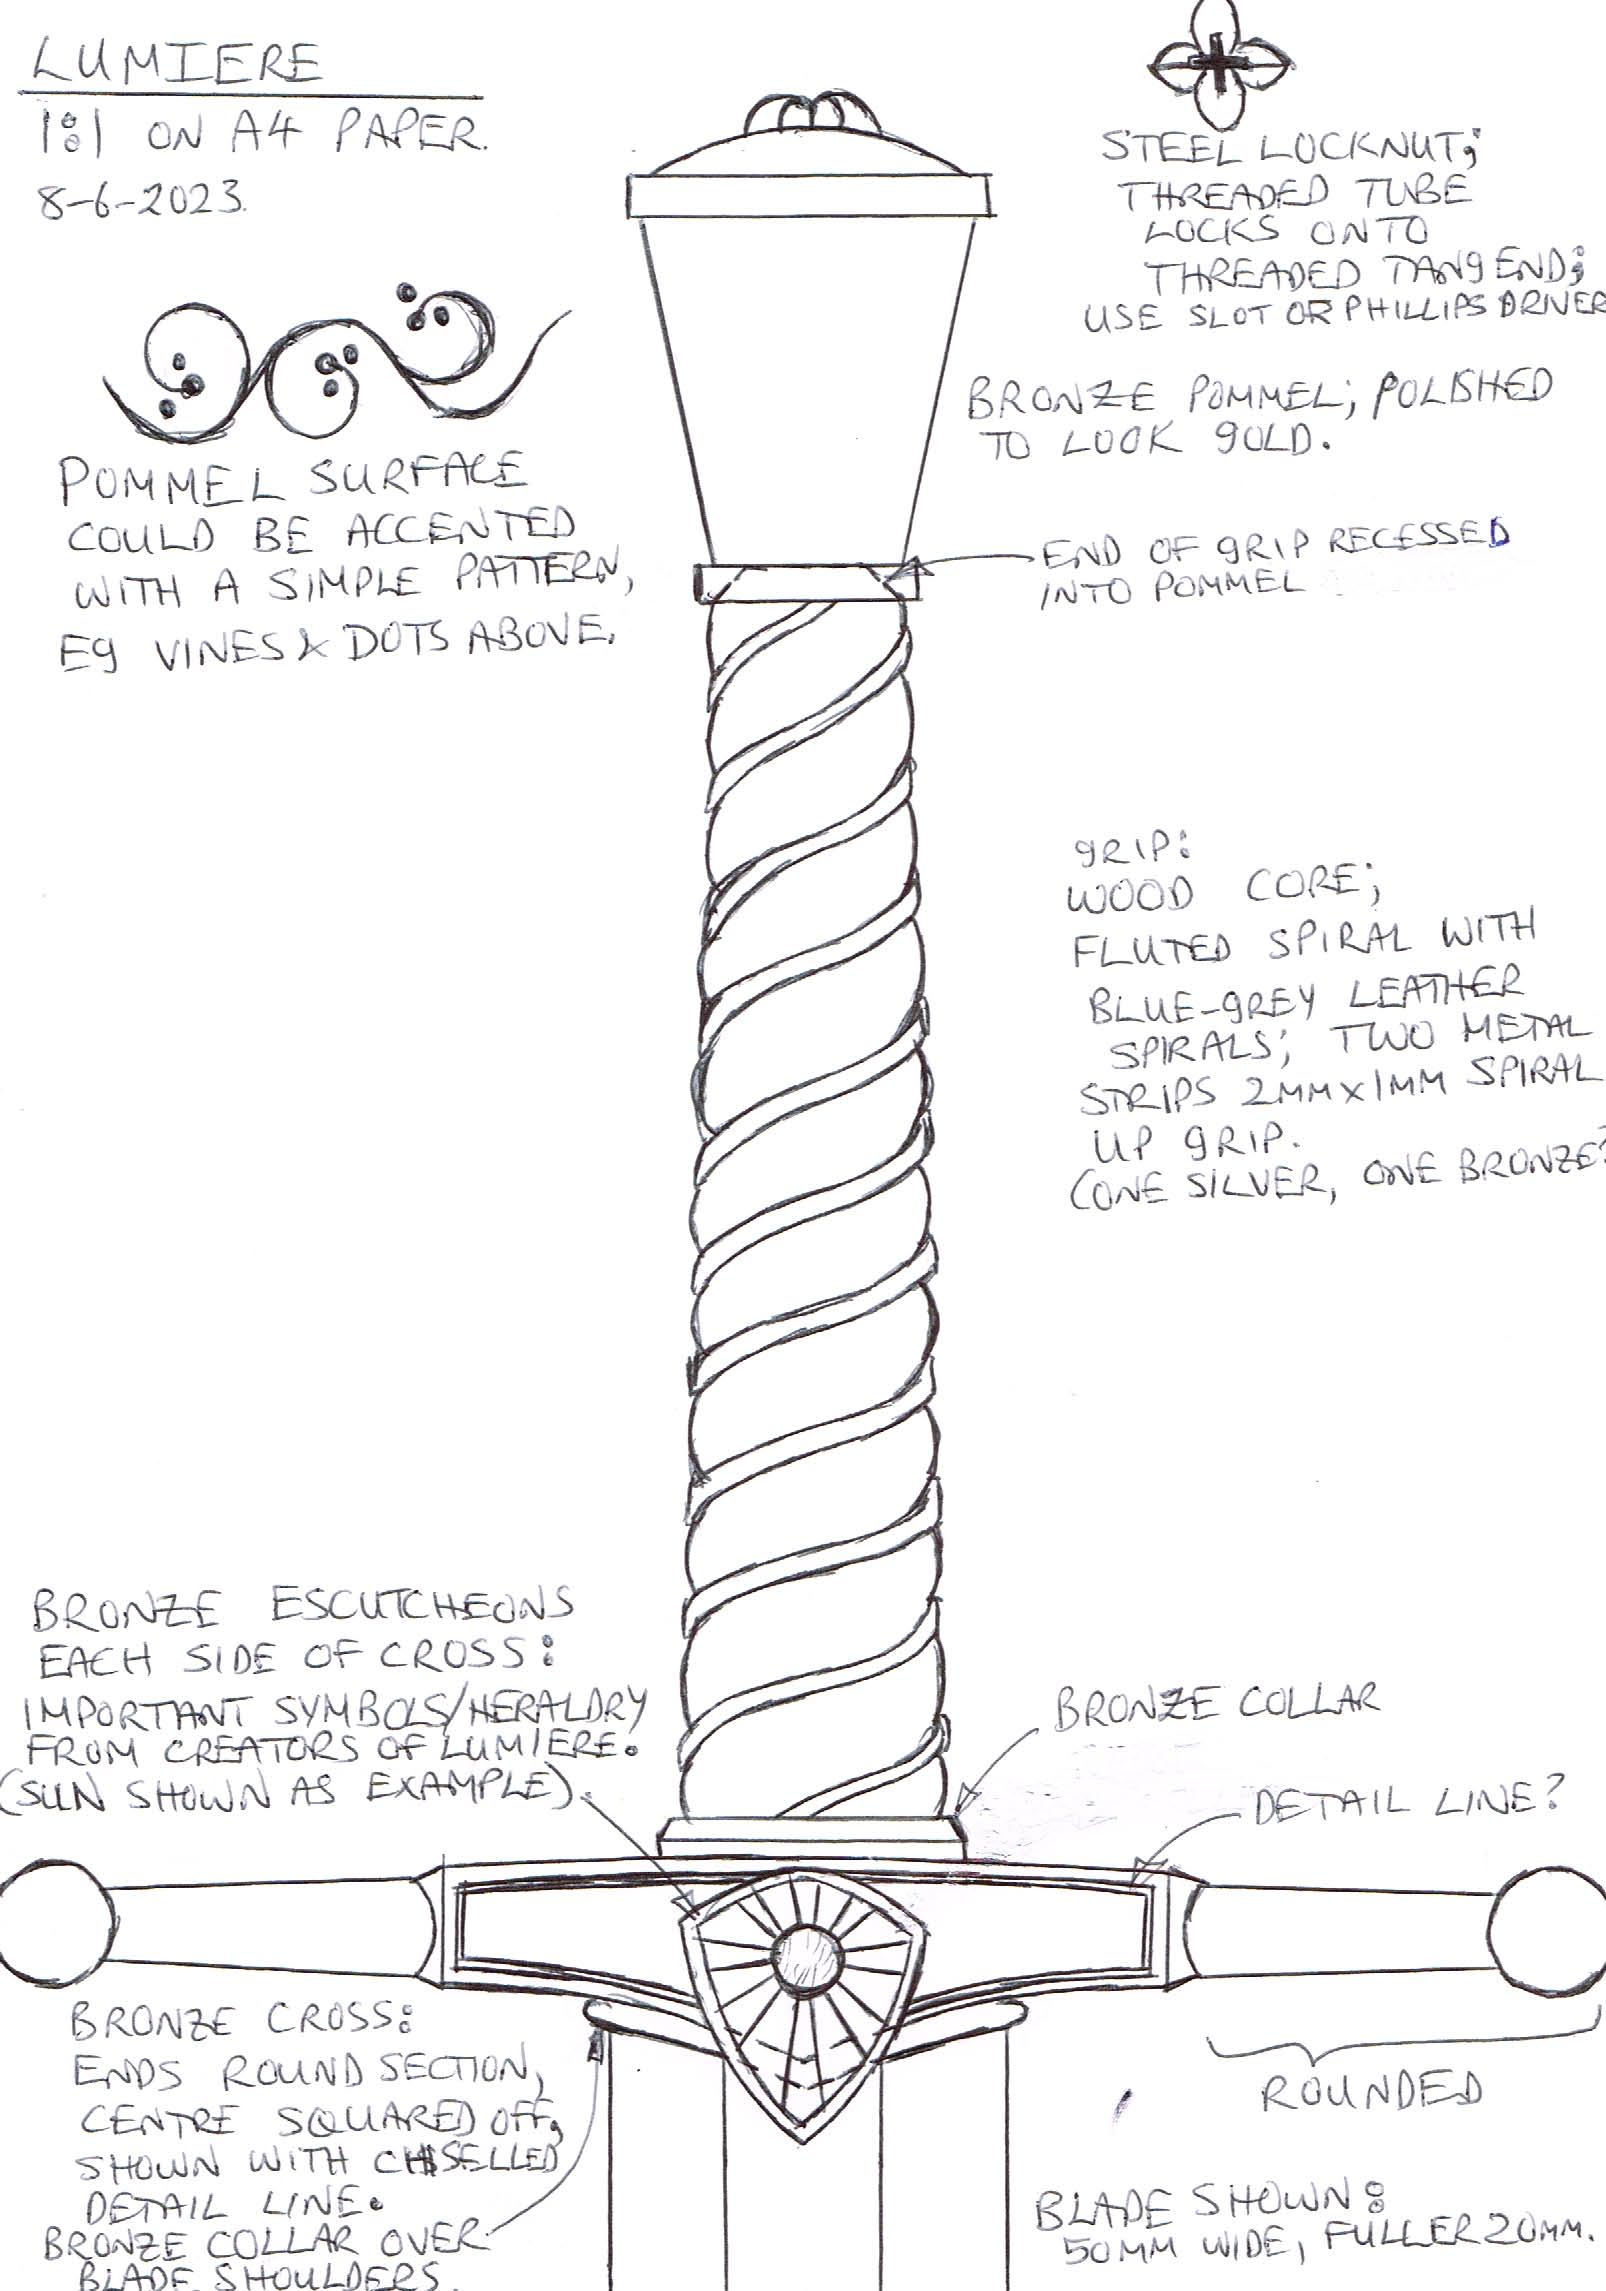 LUMIERE
1:1 ON A4 PAPER.
8-6-2023.
STEEL LOCKNUT;
THREADED TUBE
LOCKS ONTO
THREADED TANG END;
USE SLOT OR PHILLIPS DRIVER
BRONZE POMMEL; POLISHED
TO LOOK GOLD.
POMMEL SURFACE
COULD BE ACCENTED
WITH A SIMPLE PATTERN,
EG VINES & DOTS ABOVE.
END OF GRIP RECESSED
INTO POMMEL
GRIP:
WOOD CORE;
FLUTED SPIRAL WITH
BLUE-GREY LEATHER
SPIRALS; TWO METAL
STRIPS 2MM X 1MM SPIRAL
UP GRIP.
(ONE SILVER, ONE BRONZE?
BRONZE ESCUTCHEONS
EACH SIDE OF CROSS:
IMPORTANT SYMBOLS/HERALDRY
FROM CREATORS OF LUMIERE.
(SUN SHOWN AS EXAMPLE).
BRONZE COLLAR
DETAIL LINE?
BRONZE CROSS:
ENDS ROUND SECTION,
CENTRE SQUARED OFF,
SHOWN WITH CHISELLED
DETAIL LINE.
BRONZE COLLAR OVER
BLADE SHOULDERS.
ROUNDED
BLADE SHOWN:
50MM WIDE, FULLER 20MM.